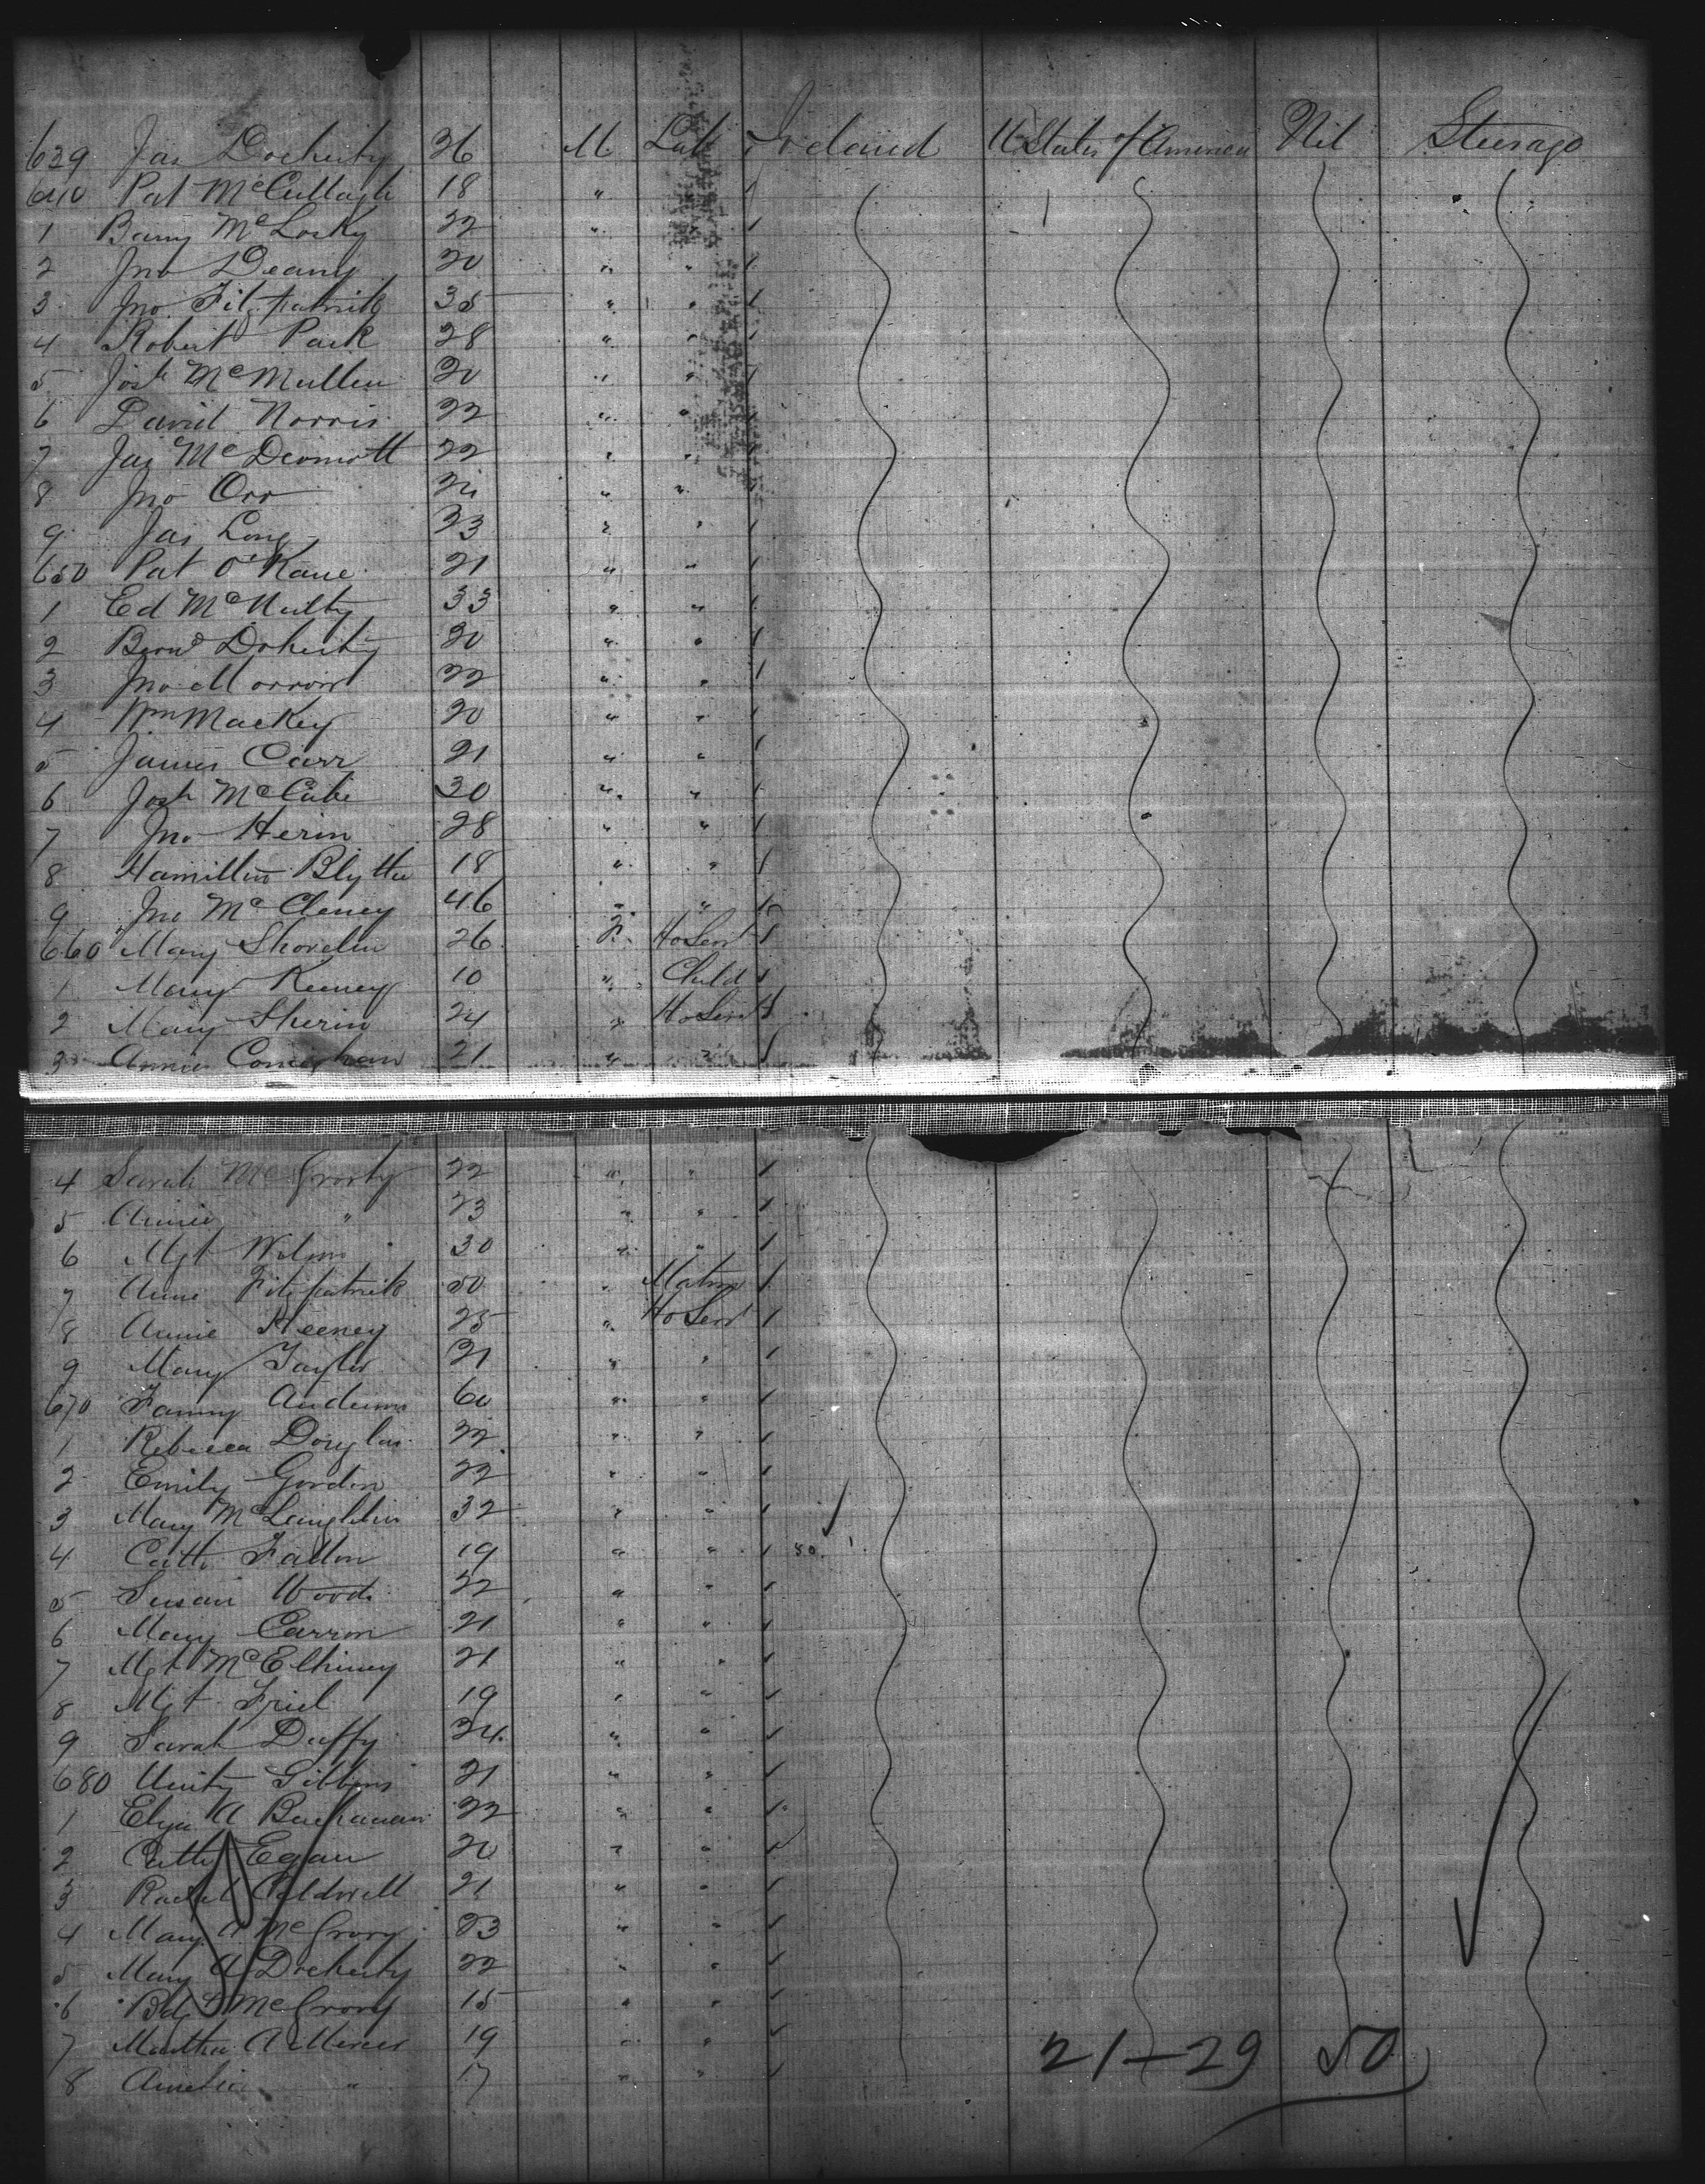 639 Jas Docherty 36 M Lab Ireland U States of America Nil Steerage
640 Pat McCullagh 18 "
1 Barny McLosky 22 "
2 Jno Deany 20 " "
3 Jno Fitzpatrick 35 " "
4 Robert Park 28 " "
5 Josh McMullen 20 " "
6 David Norris 22 " "
7 Jas McDermott 22 " "
8 Jno Orr " "
9 Jas Long 33 " "
650 Pat O'Kane 21 " "
1 Ed McNulty 33 " "
2 Bernd Doherty 20 " "
3 Jno Morrow 22 " "
4 Wm Mackey 20 " "
5 James Carr 21 " "
6 Josh McCabe 30 " "
7 Jno Herin 28 " "
8 Hamilton Blythe 18 " "
9 Jno McCleney 46 " "
660 Mary Shovelin 26 F Ho Servt
1 Mary Keeney 10 " Child
2 Mary Sherin 24 " Ho Servt
3 Annie 21 " "
4 Sarah McGrorty 22 " "
5 Annie " 23 " "
6 Mgt Wilson 30 " "
7 Anne Fitzpatrick 50 " Matron
8 Annie Keeney 25 " Ho Servt
9 Mary Taylor 21 " "
670 Fanny Anderson 60 " "
1 Rebecca Douglas 22 " "
2 Emily Gordon 22 " "
3 Mary McLaughlin 32 " "
4 Cath Fallon 19 " "
5 Susan Woods 22 " "
6 Mary Carron 21 " "
7 Mgt McElhiney 21 " "
8 Mgt Friel 19 " "
9 Sarah Duffy 24 " "
680 Unity Gibbons 21 " "
1 Eliza A Buchanan 22 " "
2 Cath Egan 20 " "
3 Rachel Caldwell 21 " "
4 Mary A McGrory 23 " "
5 Mary A Docherty 22 " "
6 Bdgt McGrory 15 " "
7 Martha A Mercer 19 " "
8 Amelia " 17 " "
21 - 29 50